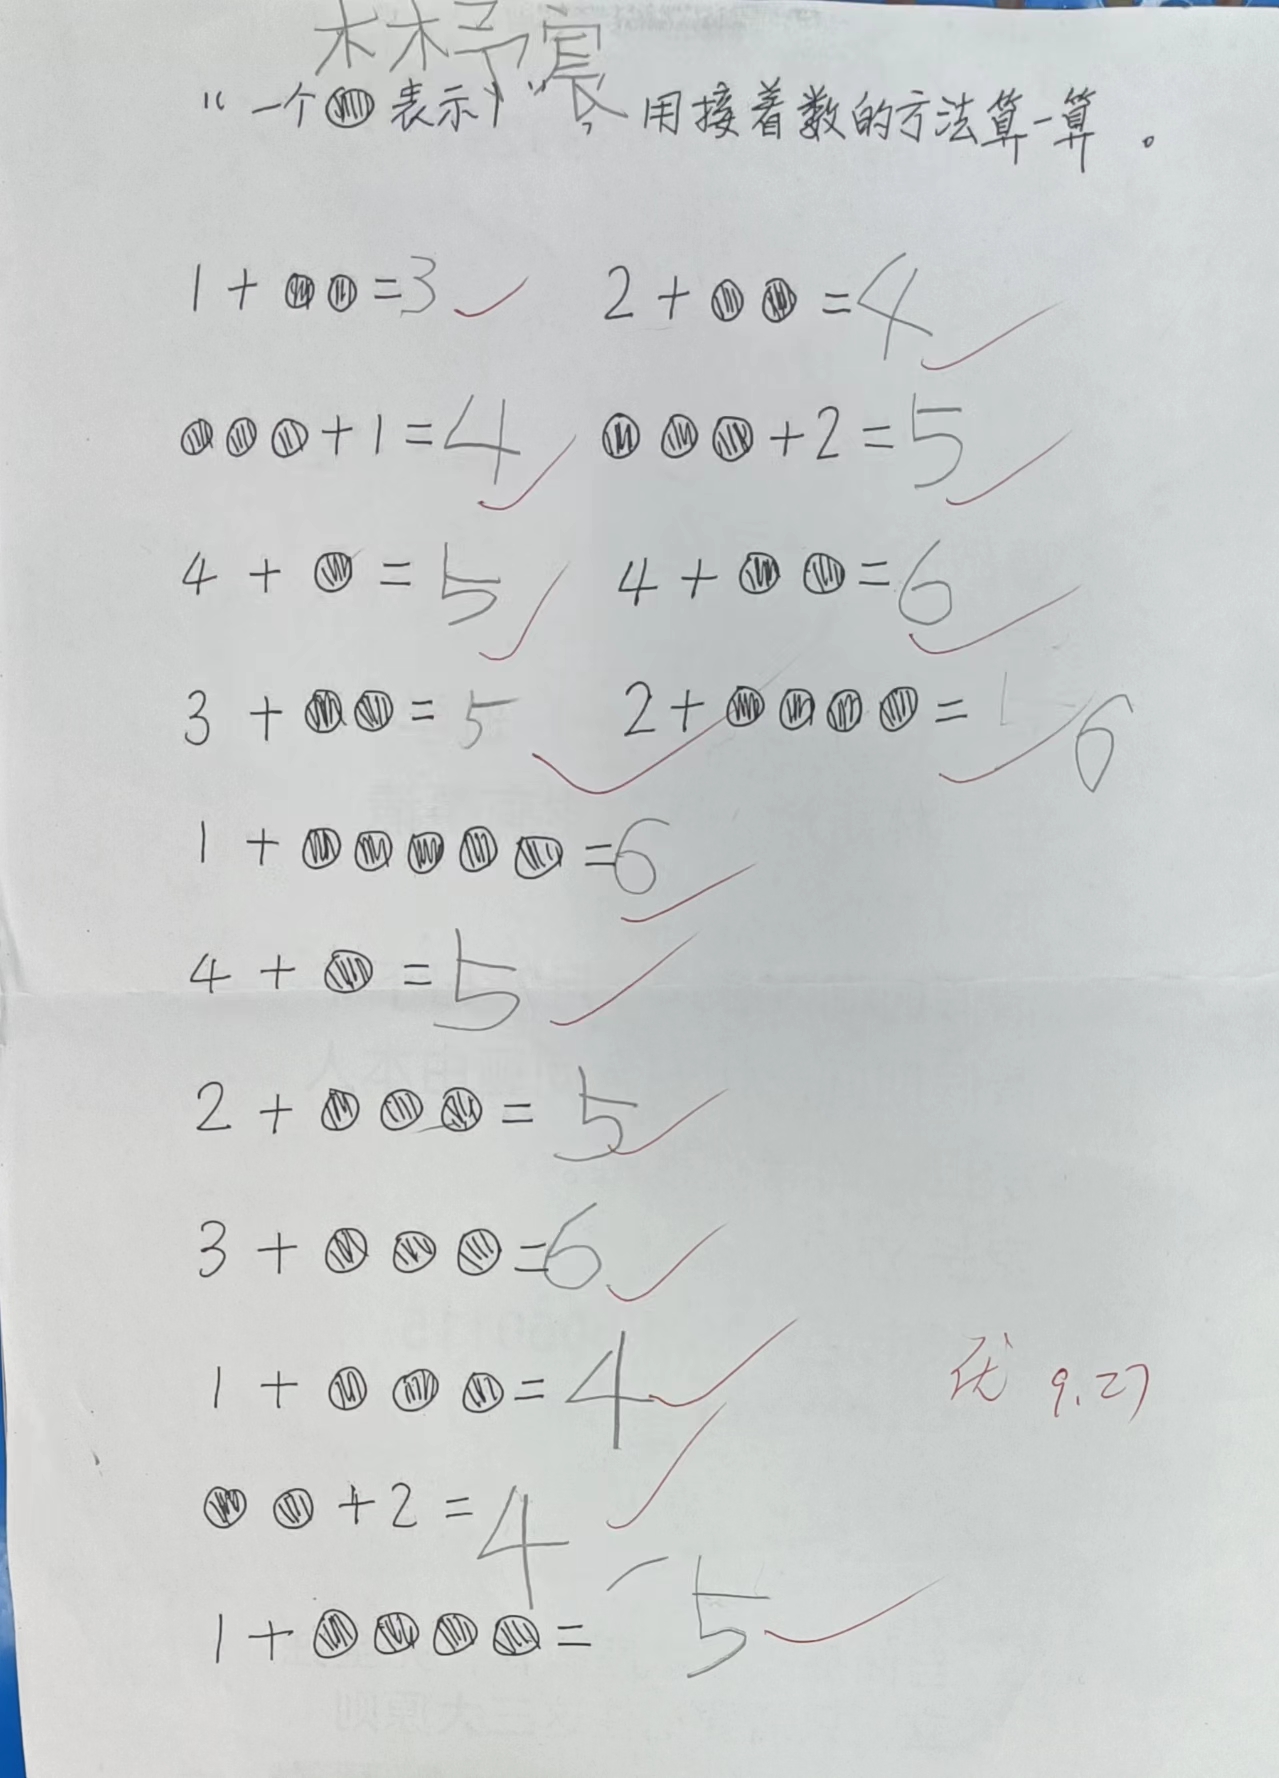 林予宸
“一个●表示1”，用接着数的方法算一算。
1+●●=3 2+●●=4
●●●+1=4 ●●●+2=5
4+●=5 4+●●=6
3+●●=5 2+●●●●=6
1+●●●●●=6
4+●=5
2+●●●=5
3+●●●=6
1+●●●=4
优 9.27
●●+2=4
1+●●●●=5